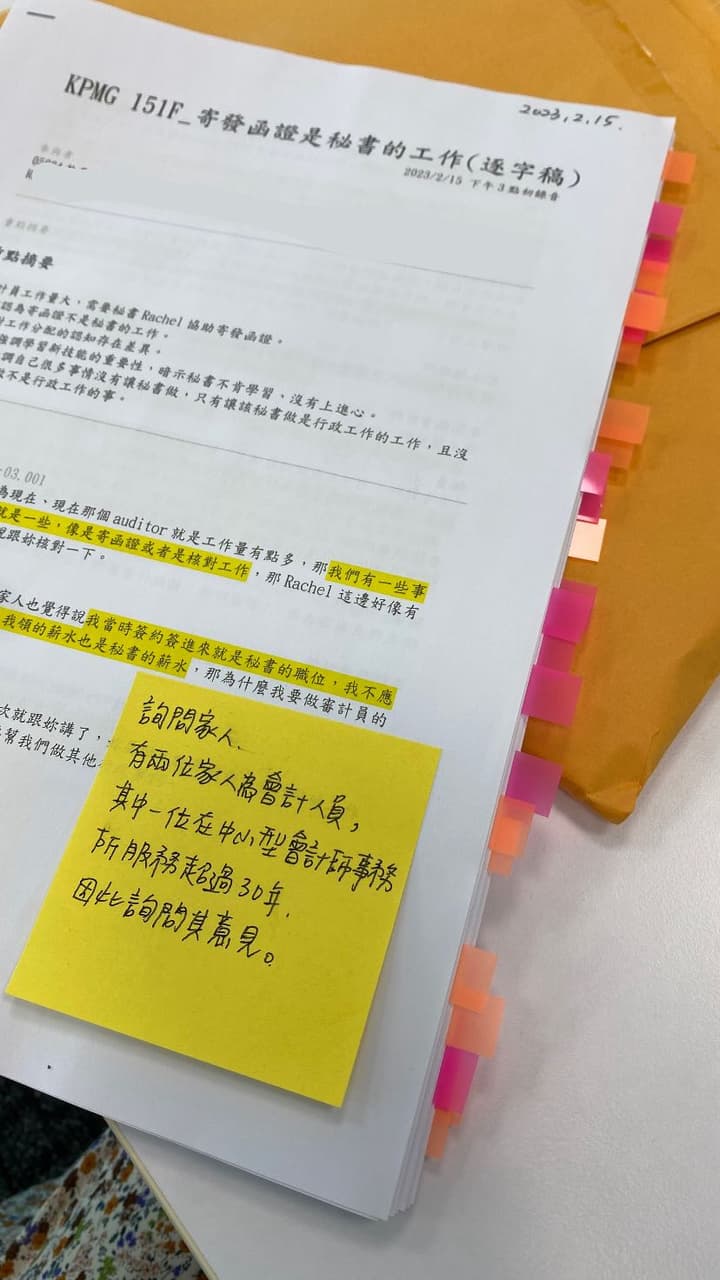 2023.2.15.
KPMG 151F_寄發函證是秘書的工作(逐字稿)
2023/2/15 下午3點初錄音
重點摘要
點摘要
計員工作量大，需要秘書Rachel協助寄發函證。
認為寄函證不是秘書的工作。
對工作分配的認知存在差異。
強調學習新技能的重要性，暗示秘書不肯學習、沒有上進心。
調自己很多事情沒有讓秘書做，只有讓該秘書做是行政工作的工作，且沒
做不是行政工作的事。
03.001
為現在、現在那個auditor就是工作量有點多，那我們有一些事
就是一些，像是寄函證或者是核對工作，那Rachel這邊好像有
說跟妳核對一下。
家人也覺得說我當時簽約簽進來就是秘書的職位，我不應
我領的薪水也是秘書的薪水，那為什麼我要做審計員的
次就跟妳講了，
幫我們做其他
詢問家人.
有兩位家人為會計人員，
其中一位在中小型會計師事務
所服務超過30年.
因此詢問其意見。